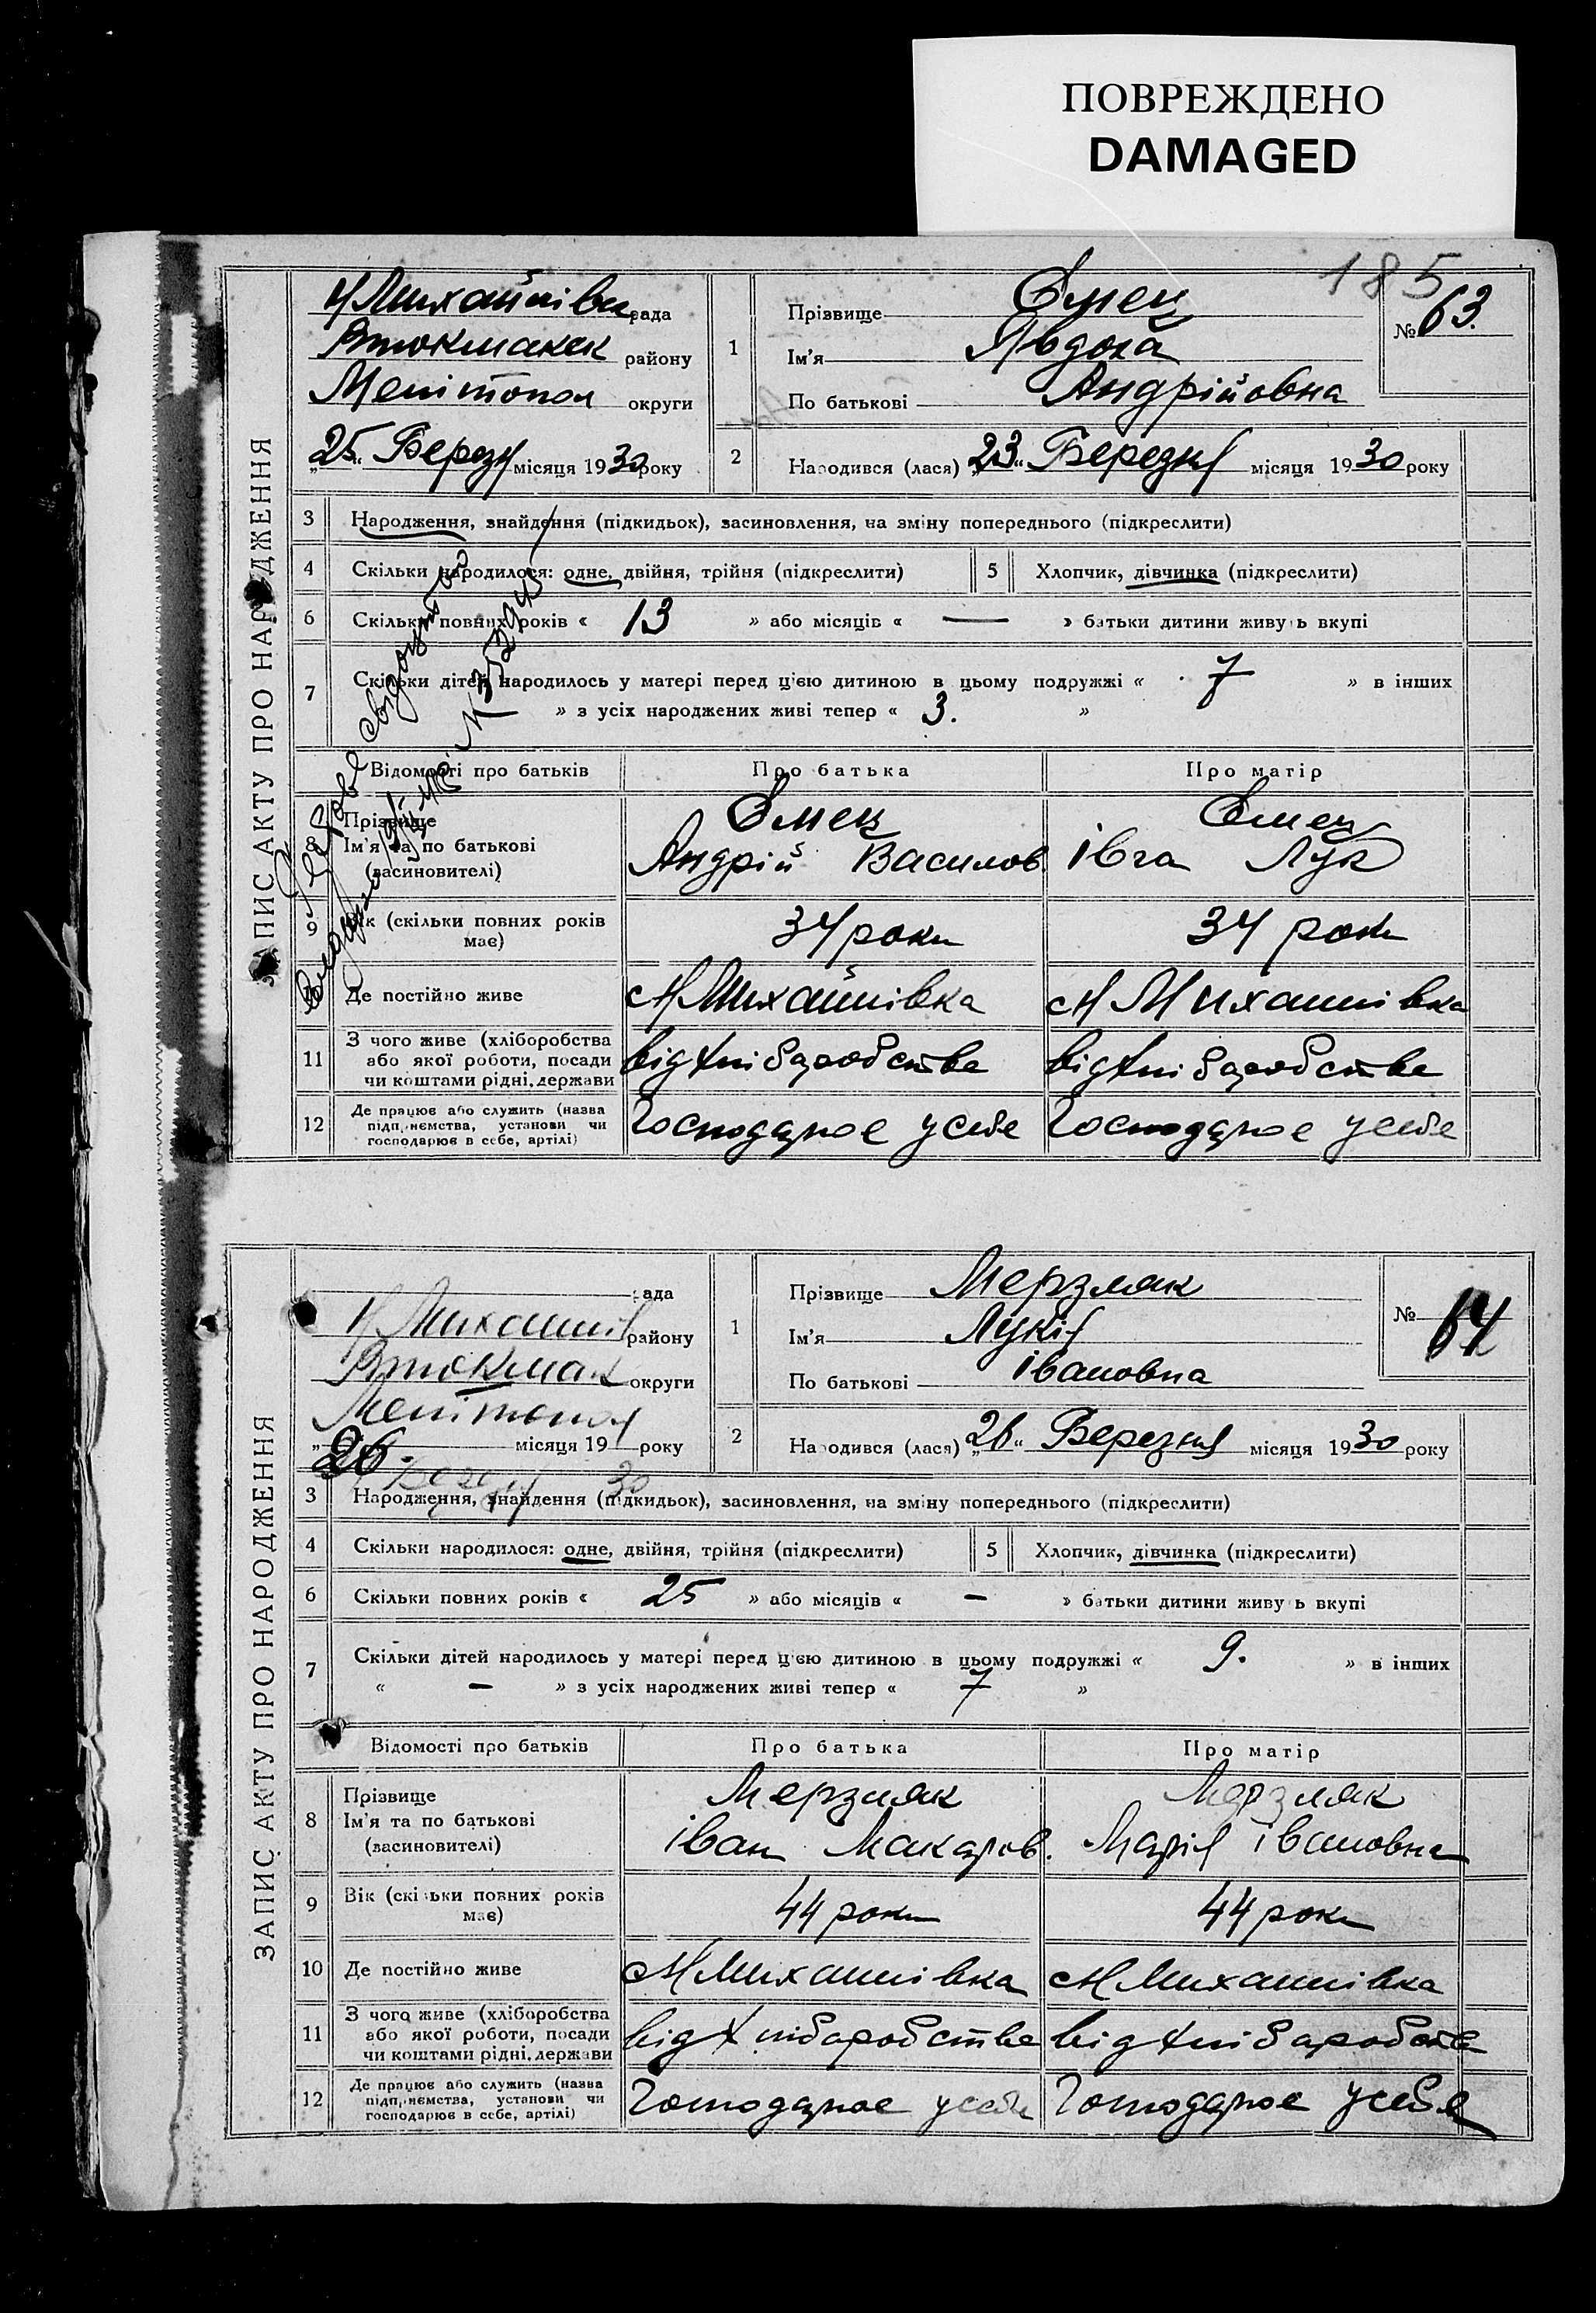 ПОВРЕЖДЕНО
DAMAGED
185
ЗАПИС АКТУ ПРО НАРОДЖЕННЯ
Н Михайлівк рада
Втокмакск району
Мелітопол округи
„25“ Березн місяця 1930 року
1
Прізвище Ємец
Ім'я Явдоха
По батькові Андрійовна
№ 63.
2
Народився (лася) „23“ Березня місяця 1930 року
3 Народження, знайдення (підкидьок), засиновлення, на зміну попереднього (підкреслити)
4 Скільки народилося: одне, двійня, трійня (підкреслити) 5 Хлопчик, дівчинка (підкреслити)
6 Скільки повних років « 13 » або місяців « — » батьки дитини живуть вкупі
7 Скільки дітей народилось у матері перед цією дитиною в цьому подружжі « 7 » в інших
» з усіх народжених живі тепер « 3. »
Відомості про батьків Про батька Про матір
8 Прізвище Ємец Ємец
Ім'я та по батькові Андрій Василов. Івга Лук
(засиновителі)
9 Вік (скільки повних років має) 34 роки 34 роки
Де постійно живе с Н Михайлівка с Н Михайлівка
11 З чого живе (хліборобства
або якої роботи, посади
чи коштами рідні, держави від хліборобства від хліборобства
12 Де працює або служить (назва
підприємства, установи чи
господарює в себе, артілі) Господарює у себе Господарює у себе
ЗАПИС АКТУ ПРО НАРОДЖЕННЯ
рада
Н Михайлів району
Втокмак округи
Мелітопол
„26 місяця 19 року
Березн 30
1
Прізвище Мерзляк
Ім'я Лукія
По батькові Івановна
№ 64
2
Народився (лася) „26“ Березня місяця 1930 року
3 Народження, знайдення (підкидьок), засиновлення, на зміну попереднього (підкреслити)
4 Скільки народилося: одне, двійня, трійня (підкреслити) 5 Хлопчик, дівчинка (підкреслити)
6 Скільки повних років « 25 » або місяців « — » батьки дитини живуть вкупі
7 Скільки дітей народилось у матері перед цією дитиною в цьому подружжі « 9. » в інших
« — » з усіх народжених живі тепер « 7 »
Відомості про батьків Про батька Про матір
8 Прізвище Мерзляк Мерзляк
Ім'я та по батькові Іван Макаров. Марія Івановна
(засиновителі)
9 Вік (скільки повних років має) 44 роки 44 роки
10 Де постійно живе с Н Михайлівка с Н Михайлівка
11 З чого живе (хліборобства
або якої роботи, посади
чи коштами рідні, держави від хліборобства від хліборобства
12 Де працює або служить (назва
підприємства, установи чи
господарює в себе, артілі) Господарює у себе Господарює у себе